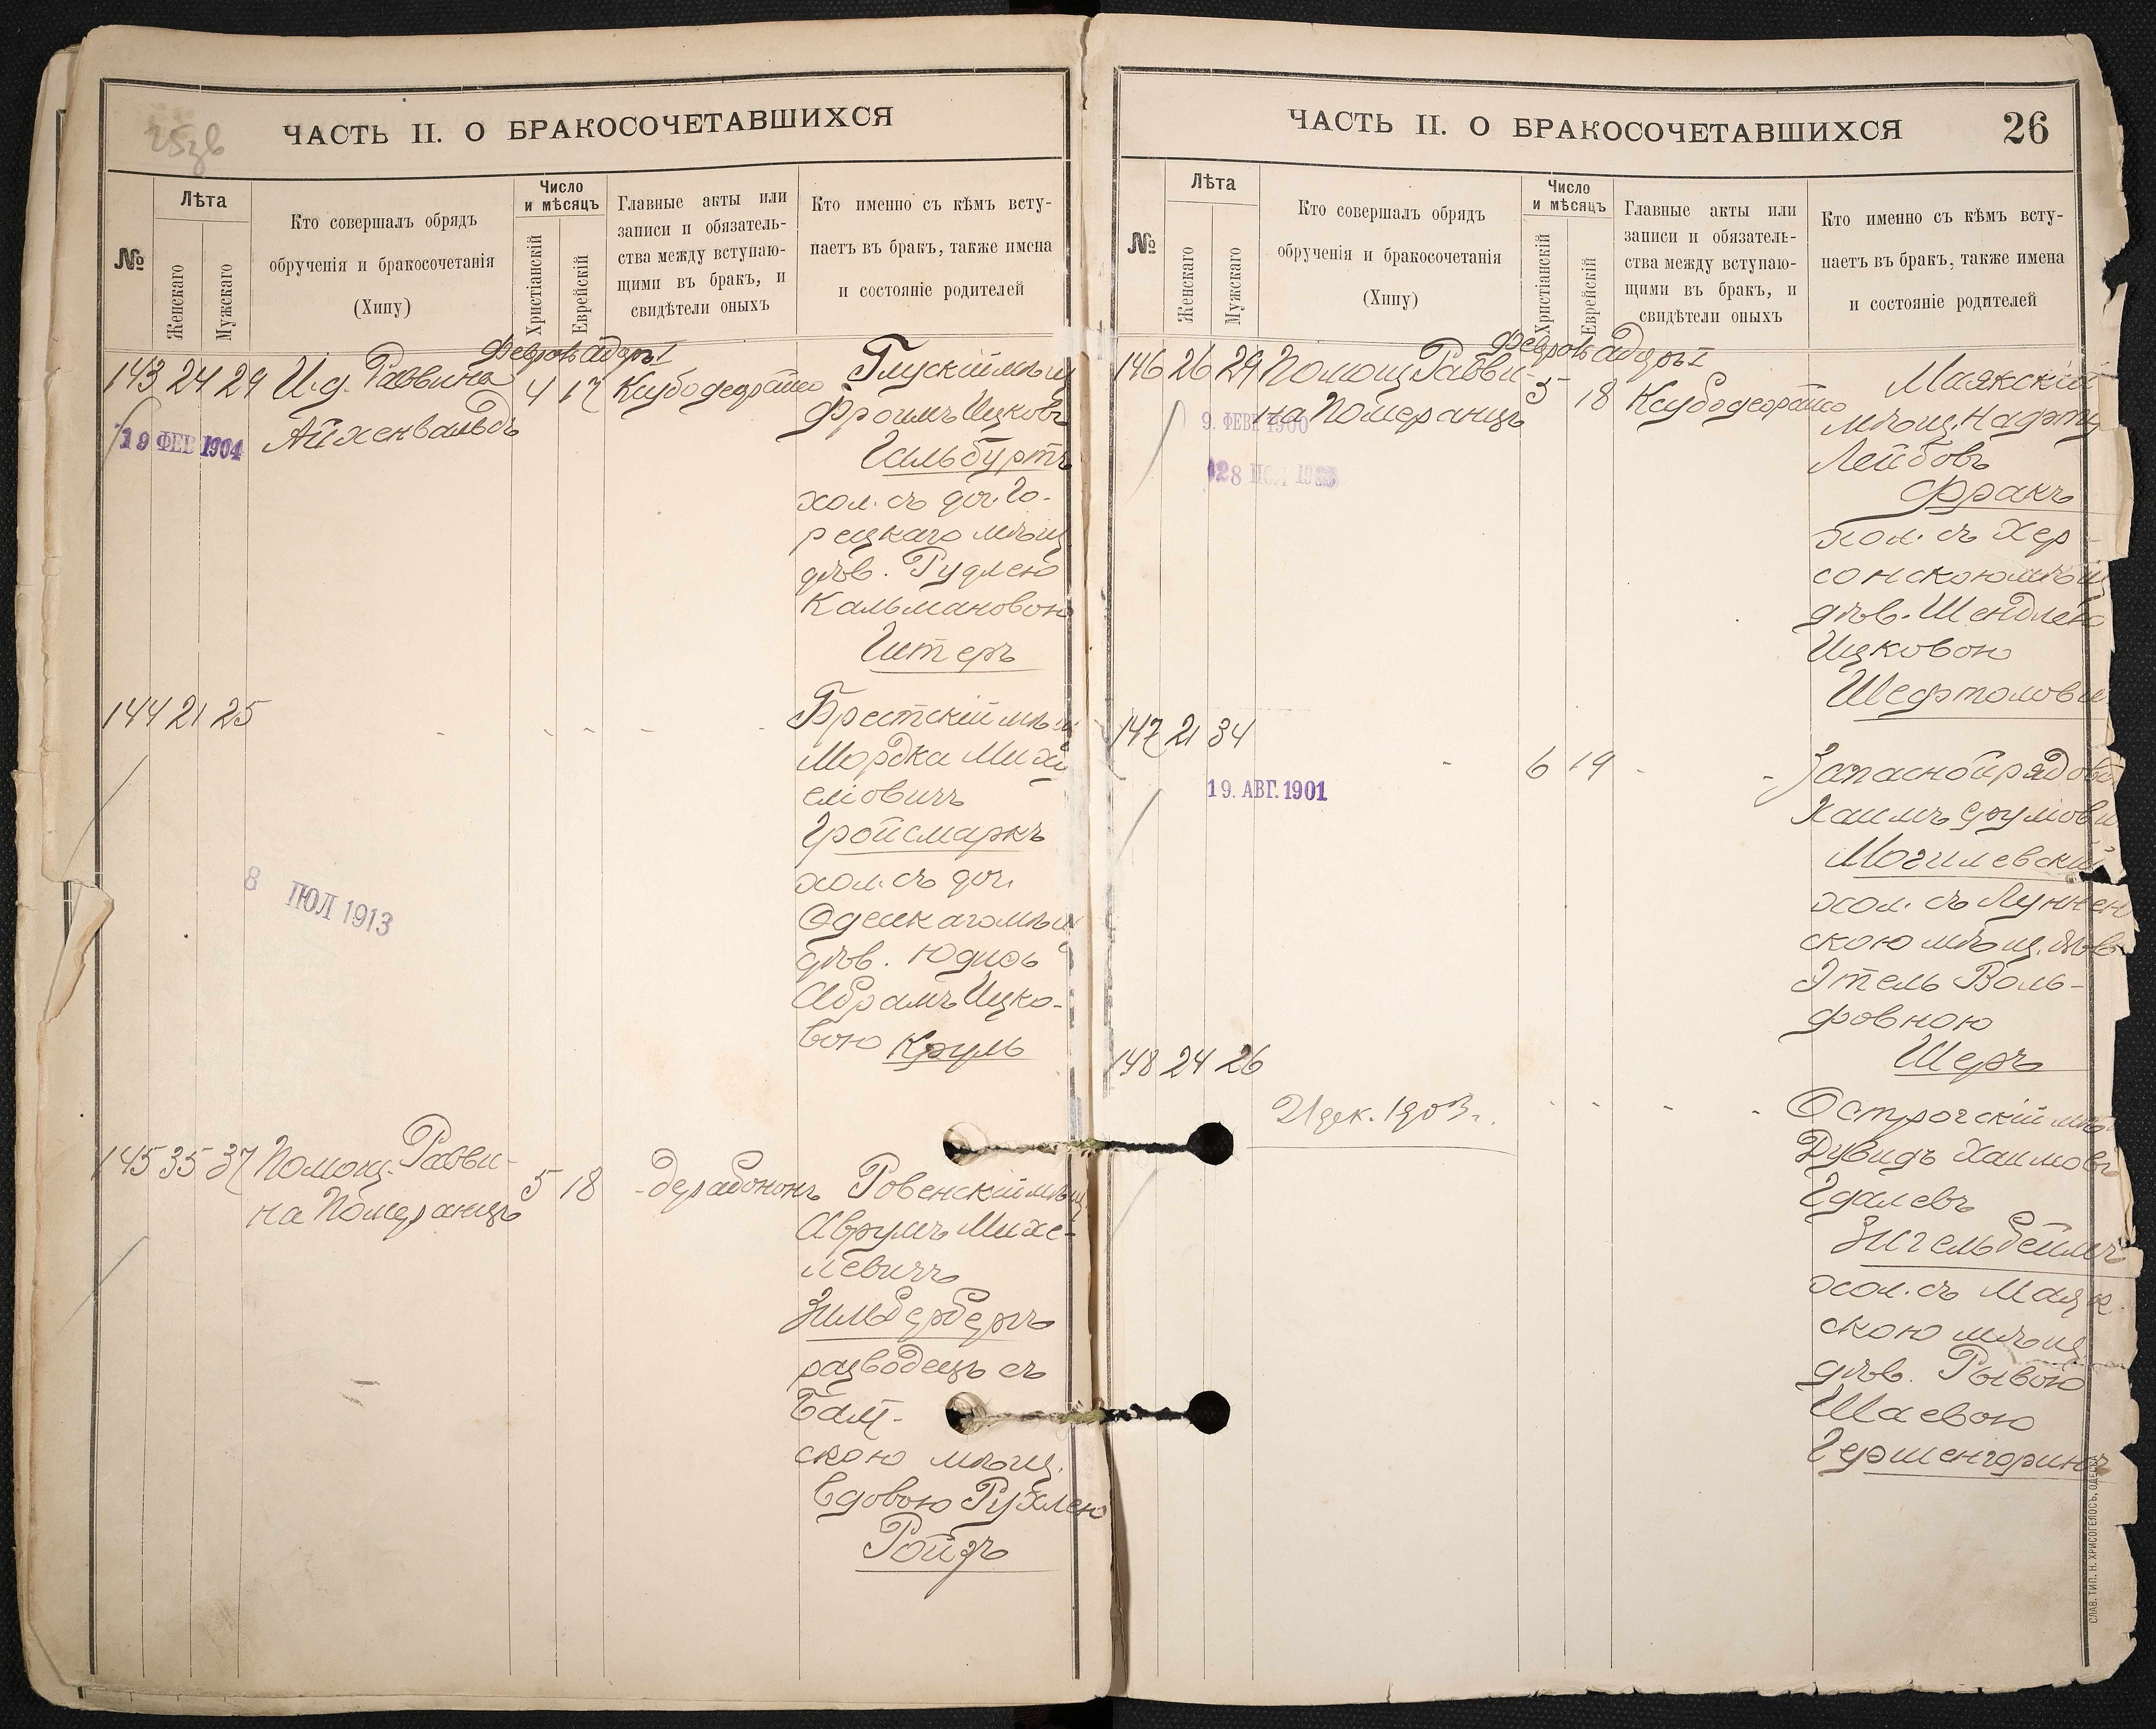 25об
ЧАСТЬ II. О БРАКОСОЧЕТАВШИХСЯ
№
Лѣта
Женскаго
Мужскаго
Кто совершалъ обрядъ
обрученія и бракосочетанія
(Хипу)
Число
и мѣсяцъ
Христіанскій
Еврейскій
Главные акты или
записи и обязатель-
ства между вступаю-
щими въ бракъ, и
свидѣтели оныхъ
Кто именно съ кѣмъ всту-
паетъ въ бракъ, также имена
и состояніе родителей
Февраль Адаръ I
143 24 29 И.д. Раввина 4 17
Айхенвальдъ
19 ФЕВ 1904
Глускій мѣщ
Фроимъ Ицковъ
Гильбуртъ
хол. съ доч. Го-
рецкаго мѣщ.
дѣв. Рудлею
Кальмановою
Гитеръ
144 21 25
8 ІЮЛ 1913
Брестскій мѣщ
Мордка Михе
еліовичъ
Гройсмаркъ
хол. съ доч.
Одесскаго мѣщ
дѣв. Юдись
Абрамъ Ицко-
вою Круль
145 35 37 Помощ. Равви-
на Померанцъ 5 18
Ровенскій мѣщ
Аврумъ Михе-
левичъ
Зильбербергъ
разводецъ съ
Балт-
скою мѣщ.
вдовою Рухлею
Ройзъ
ЧАСТЬ II. О БРАКОСОЧЕТАВШИХСЯ
26
№
Лѣта
Женскаго
Мужскаго
Кто совершалъ обрядъ
обрученія и бракосочетанія
(Хипу)
Число
и мѣсяцъ
Христіанскій
Еврейскій
Главные акты или
записи и обязатель-
ства между вступаю-
щими въ бракъ, и
свидѣтели оныхъ
Кто именно съ кѣмъ всту-
паетъ въ бракъ, также имена
и состояніе родителей
Февраль Адаръ I
146 26 29 Помощ Равви-
на Померанцъ 5 18
9. ФЕВР 1900
Маякскій
мѣщ. Нафту
Лейбовъ
Фракъ
хол. съ Хер-
сонскою мѣщ
дѣв. Шендлею
Ицковою
Шефтолови
147 21 34
6 19
19. АВГ. 1901
Запасной рядово
Хаимъ Сруліови
Могилевскій
хол. съ Луннен
скою мѣщ. дѣв
Этель Воль-
фовною
Шеръ
148 24 26
21 дек. 1903 г.
Острогскій мѣщ
Дувидъ Хаимовъ
Гдалевъ
Зигельбеймъ
хол. съ Маяк
скою мѣщ
дѣв. Рывою
Шаевою
Гершенгоринъ
СЛАВ. ТИП. Н. ХРИСОГЕЛОСЪ, ОДЕССА